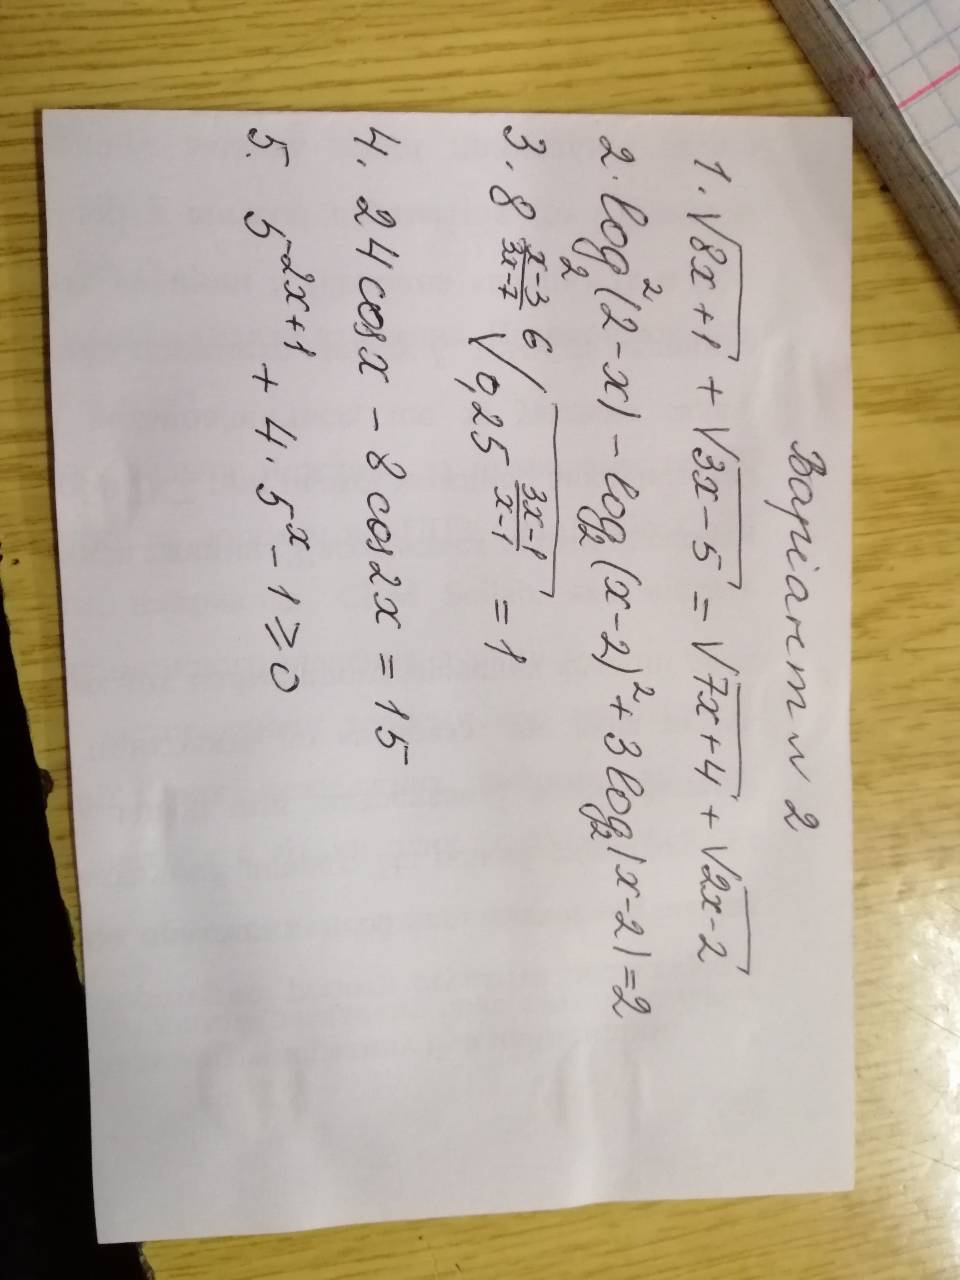 Варіант № 2
1. √(8x+1) + √(3x-5) = √(7x+4) + √(2x-2)
2. log₂²(2-x) - log₂(x-2)² + 3log₂|x-2| = 2
3. 8^((x-3)/(3x-7)) ⁶√(0,25^((3x-1)/(x-1))) = 1
4. 24cosx - 8cos2x = 15
5. 5^(-2x+1) + 4·5^x - 1 ≥ 0